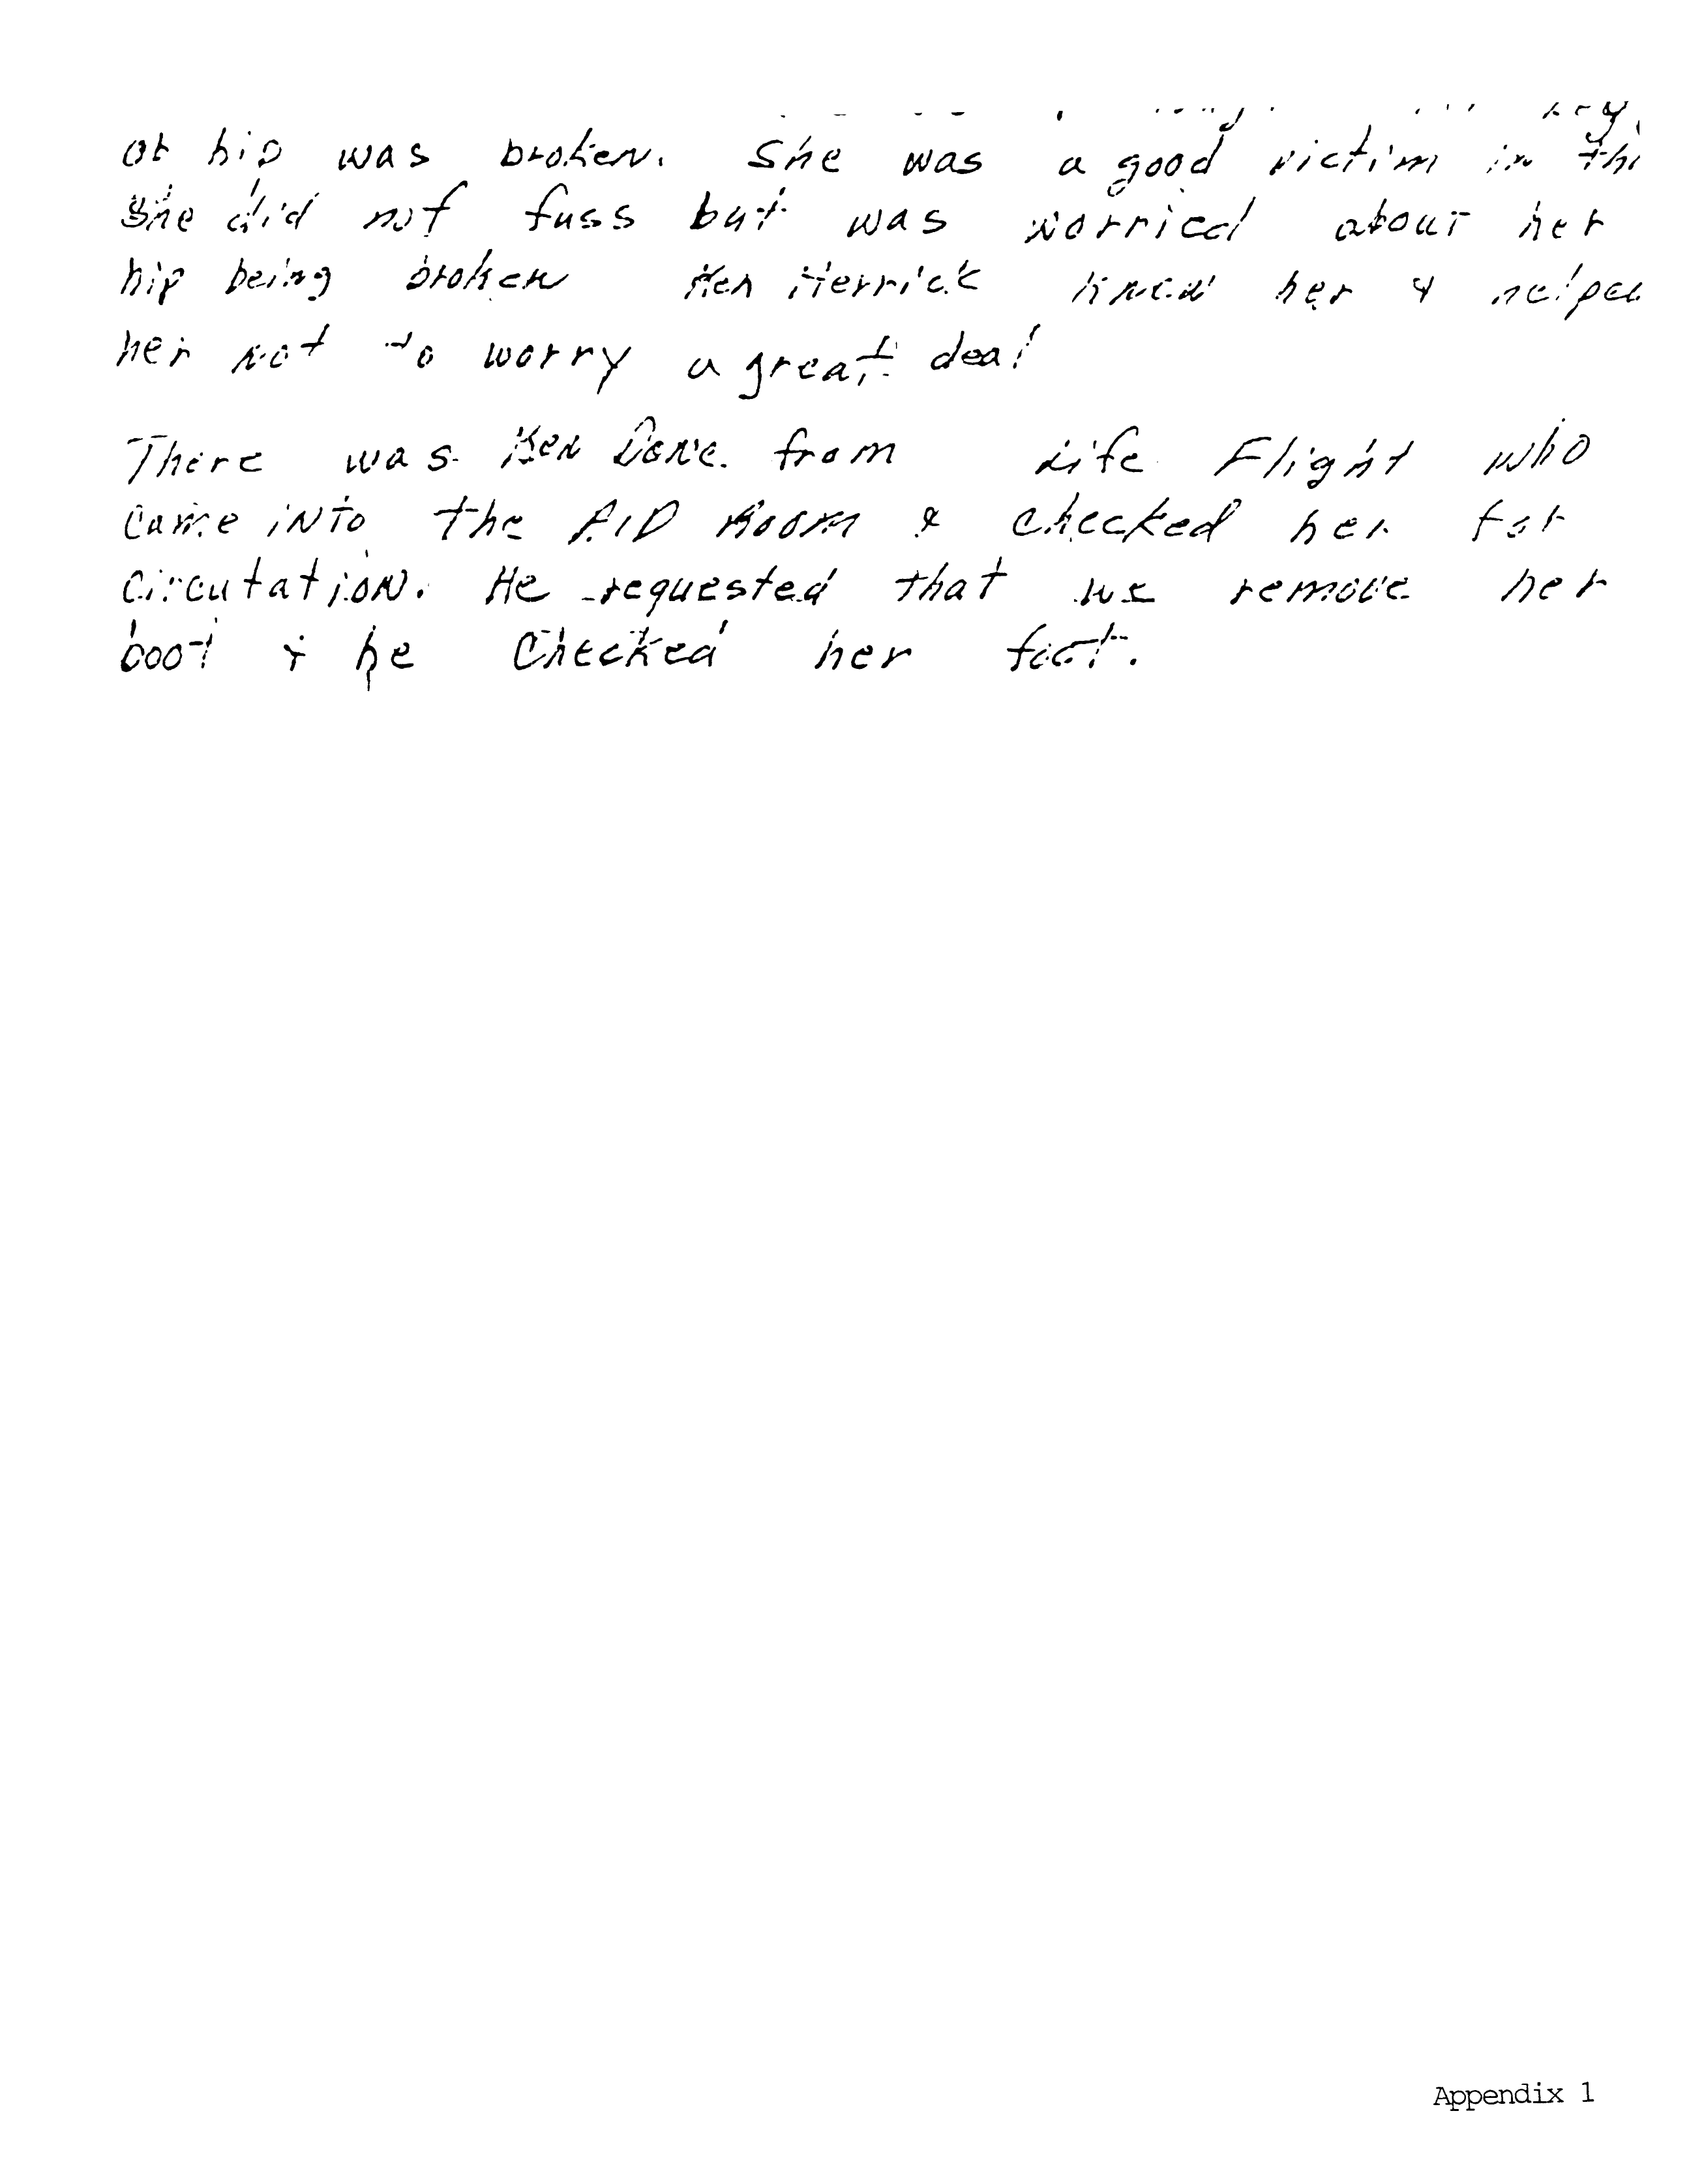 or hip was broken. She was a good victim in
She did not fuss but was worried about her
hip being broken Ken Herrick knew her & helped
her not to worry a great deal
There was Ken from Life Flight who
came into the AID Room & checked her for
circutation. He requested that we remove her
boot & he checked her foot.
Appendix 1